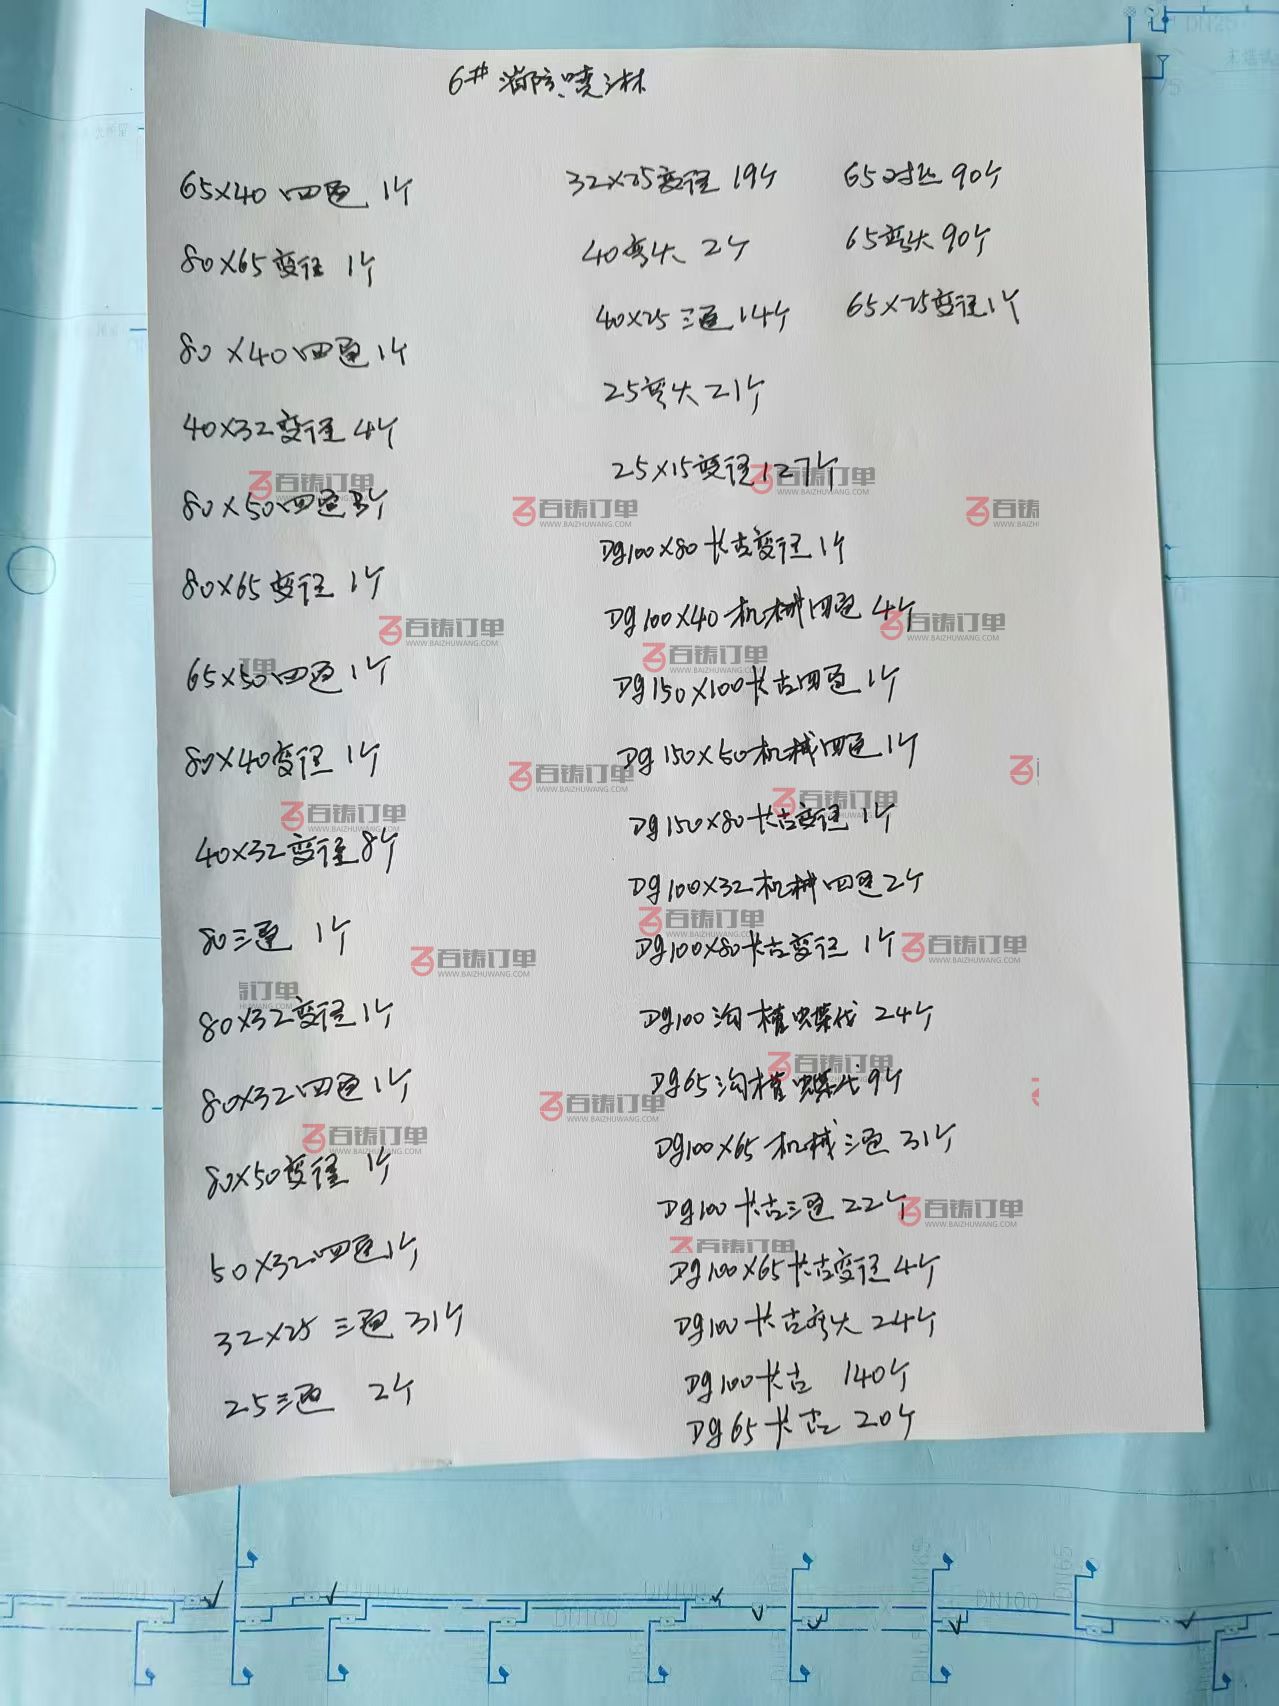 6# 消防喷淋
65×40 四通 1个
80×65变径 1个
80×40四通 1个
40×32变径 4个
80×50四通3个
80×65变径 1个
65×50四通 1个
80×40变径 1个
40×32变径8个
80三通 1个
80×32变径1个
80×32四通1个
80×50变径 1个
50×32四通1个
32×25 三通 31个
25三通 2个
32×25变径 19个
40弯头 2个
40×25三通14个
25弯头21个
25×15变径127个
Dg100×80卡古变径1个
Dg100×40机械四通4个
Dg150×100卡古四通1个
Dg150×50机械四通1个
Dg150×80卡古变径1个
Dg100×32机械四通2个
Dg100×80卡古变径 1个
Dg100沟槽蝶伐 24个
Dg65沟槽蝶伐9个
Dg100×65机械三通31个
Dg100卡古三通22个
Dg100×65卡古变径4个
Dg100卡古弯头24个
Dg100卡古 140个
Dg65卡古 20个
65对丝90个
65弯头90个
65×25变径1个
百铸订单
WWW.BAIZHUWANG.COM